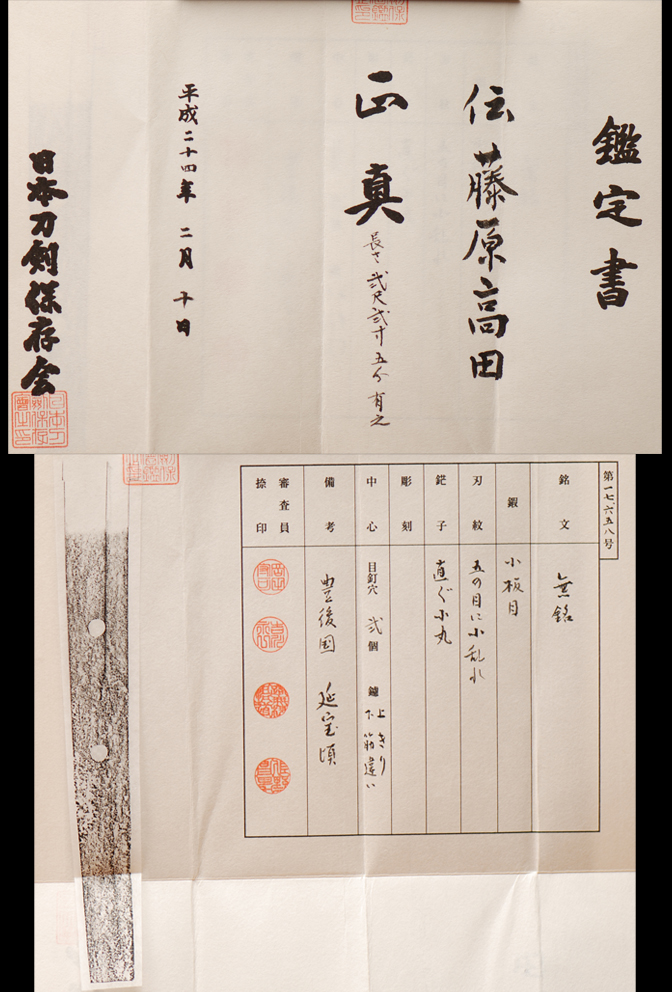 鑑定書
伝 藤原高田
正真
長さ 弐尺弐寸五分有之
平成二十四年 二月 十日
日本刀剣保存会
第一七、六五八号
銘文
無銘
鍜
小板目
刃紋
五の目に小乱れ
鋩子
直ぐ小丸
彫刻
中心
目釘穴 弐個 鑢 上 きり
下 筋違い
備考
豊後国 延宝頃
審査員
捺印